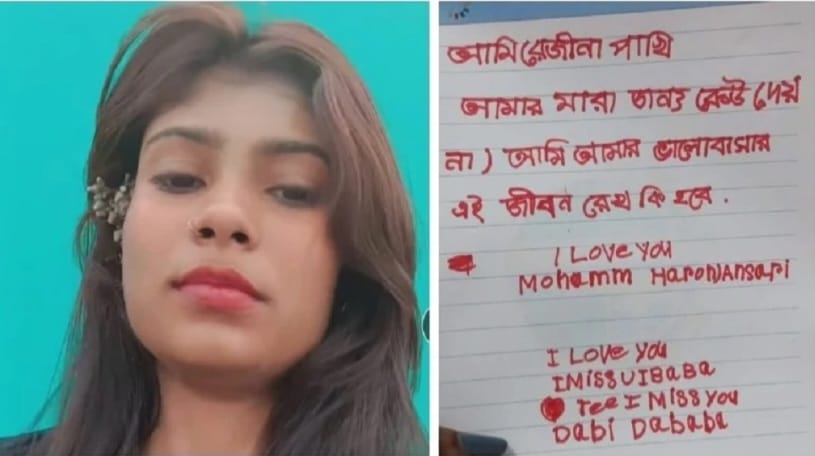 আমি রেজীনা পাখি
আমার মারা তানর কেউ দেয়
না) আমি আমার ভালোবাসার
এই জীবন রেখ কি হবে.
I Love you
Mohamm HaronJAnsari
I Love you
IMissUIBaBa
Tee I Miss you
Dabi Dababa